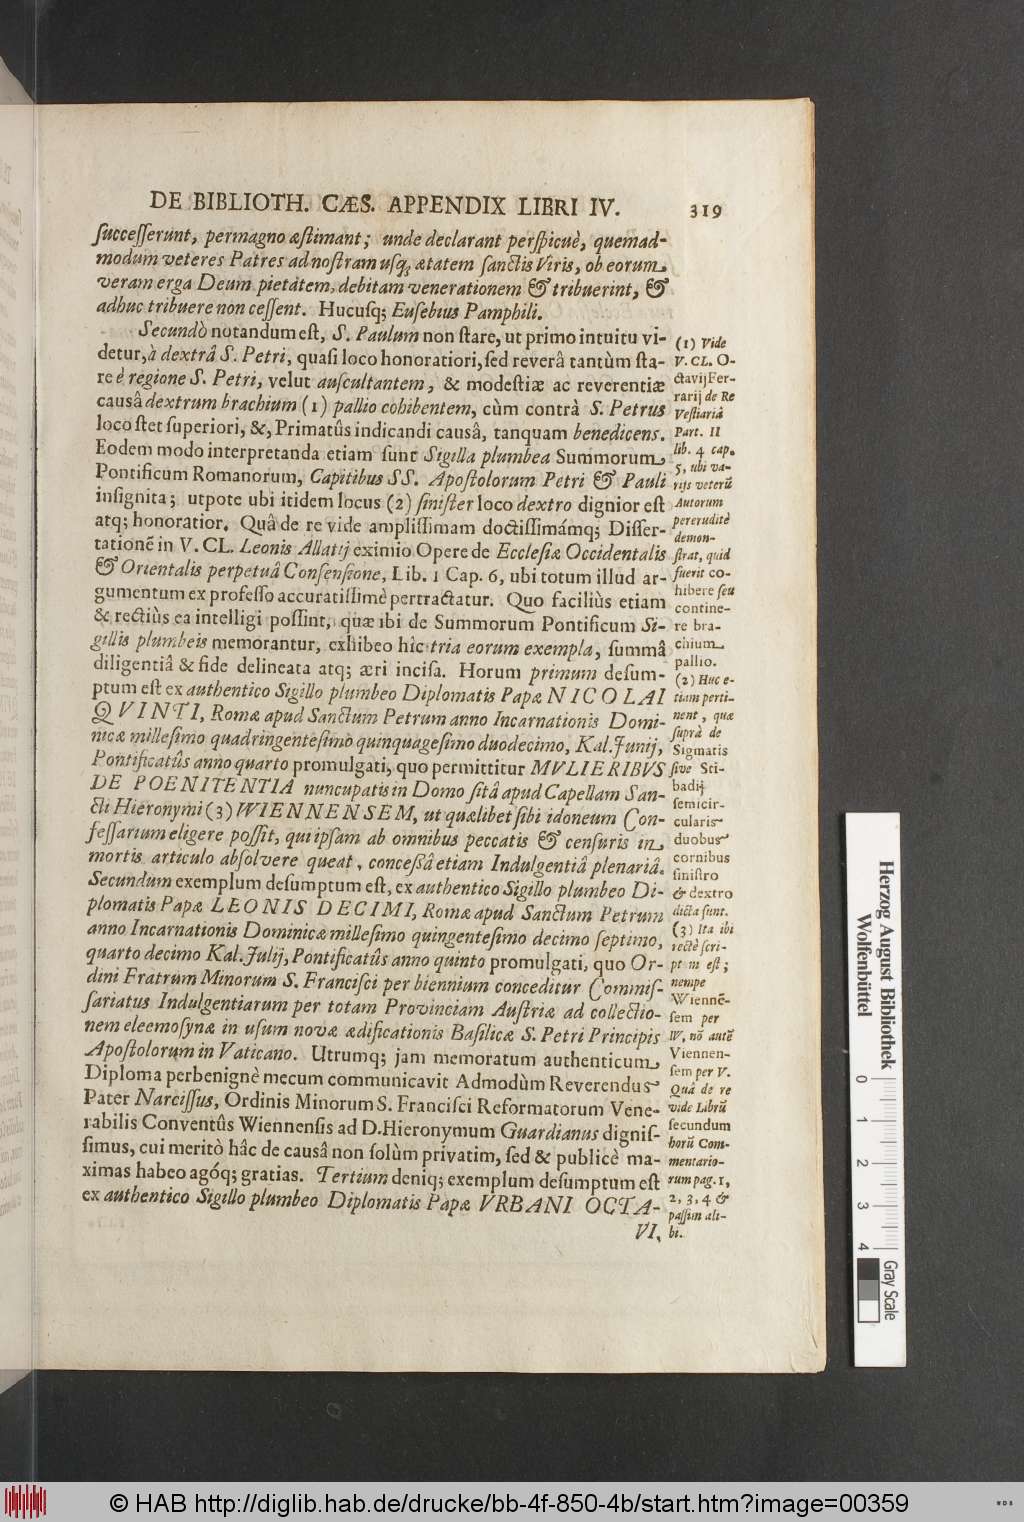 DE BIBLIOTH. CÆS. APPENDIX LIBRI IV. 319
ſucceſſerunt, permagno æſtimant; unde declarant perſpicuè, quemad-
modum veteres Patres ad noſtram uſq; ætatem ſanctis Viris, ob eorum
veram erga Deum pietatem, debitam venerationem & tribuerint, &
adhuc tribuere non ceſſent. Hucuſq; Euſebius Pamphili.
Secundò notandum eſt, S. Paulum non ſtare, ut primo intuitu vi-
detur, à dextrâ S. Petri, quaſi loco honoratiori, ſed reverâ tantùm ſta-
re è regione S. Petri, velut auſcultantem, & modeſtiæ ac reverentiæ
causâ dextrum brachium (1) pallio cohibentem, cùm contrà S. Petrus
loco ſtet ſuperiori, &, Primatûs indicandi causâ, tanquam benedicens.
Eodem modo interpretanda etiam ſunt Sigilla plumbea Summorum
Pontificum Romanorum, Capitibus SS. Apoſtolorum Petri & Pauli
inſignita; utpote ubi itidem locus (2) ſiniſter loco dextro dignior eſt
atq; honoratior. Quâ de re vide ampliſſimam doctiſſimámq; Diſſer-
tationē in V. CL. Leonis Allatij eximio Opere de Eccleſiæ Occidentalis
& Orientalis perpetuâ Conſenſione, Lib. 1 Cap. 6, ubi totum illud ar-
gumentum ex profeſſo accuratiſſimè pertractatur. Quo faciliùs etiam
& rectiùs ea intelligi poſſint, quæ ibi de Summorum Pontificum Si-
gillis plumbeis memorantur, exhibeo hîc tria eorum exempla, ſummâ
diligentiâ & fide delineata atq; æri inciſa. Horum primum deſum-
ptum eſt ex authentico Sigillo plumbeo Diplomatis Papæ NICOLAI
QVINTI, Romæ apud Sanctum Petrum anno Incarnationis Domi-
nicæ milleſimo quadringenteſimo quinquageſimo duodecimo, Kal. Junij,
Pontificatûs anno quarto promulgati, quo permittitur MVLIERIBVS
DE POENITENTIA nuncupatis in Domo ſitâ apud Capellam San-
cti Hieronymi (3) WIENNENSEM, ut quælibet ſibi idoneum Con-
feſſarium eligere poſſit, qui ipſam ab omnibus peccatis & cenſuris in
mortis articulo abſolvere queat, conceßâ etiam Indulgentiâ plenariâ.
Secundum exemplum deſumptum eſt, ex authentico Sigillo plumbeo Di-
plomatis Papæ LEONIS DECIMI, Romæ apud Sanctum Petrum
anno Incarnationis Dominicæ milleſimo quingenteſimo decimo ſeptimo,
quarto decimo Kal. Julij, Pontificatûs anno quinto promulgati, quo Or-
dini Fratrum Minorum S. Franciſci per biennium conceditur Commiſ-
ſariatus Indulgentiarum per totam Provinciam Auſtriæ ad collectio-
nem eleemoſynæ in uſum novæ ædificationis Baſilicæ S. Petri Principis
Apoſtolorum in Vaticano. Utrumq; jam memoratum authenticum
Diploma perbenignè mecum communicavit Admodùm Reverendus
Pater Narciſſus, Ordinis Minorum S. Franciſci Reformatorum Vene-
rabilis Conventûs Wiennenſis ad D. Hieronymum Guardianus digniſ-
ſimus, cui meritò hâc de causâ non ſolùm privatim, ſed & publicè ma-
ximas habeo agóq; gratias. Tertium deniq; exemplum deſumptum eſt
ex authentico Sigillo plumbeo Diplomatis Papæ VRBANI OCTA-
VI,
(1) Vide
V. CL. O-
ctavij Fer-
rarij de Re
Veſtiariâ
Part. II
lib. 4 cap.
5, ubi va-
rijs veterū
Autorum
pereruditè
demon-
ſtrat, quid
fuerit co-
hibere ſeu
contine-
re bra-
chium
pallio.
(2) Huc e-
tiam perti-
nent, quæ
ſuprà de
Sigmatis
ſive Sti-
badij
ſemicir-
cularis
duobus
cornibus
ſiniſtro
& dextro
dicta ſunt.
(3) Ita ibi
rectè ſcri-
pt m eſt;
nempe
Wiennē-
ſem per
W, nō autē
Viennen-
ſem per V.
Quâ de re
vide Librū
ſecundum
horū Com-
mentario-
rum pag. 1,
2, 3, 4 &
paſſim ali-
bi.
Herzog August Bibliothek
Wolfenbüttel
0 1 2 3 4
Gray Scale
© HAB http://diglib.hab.de/drucke/bb-4f-850-4b/start.htm?image=00359